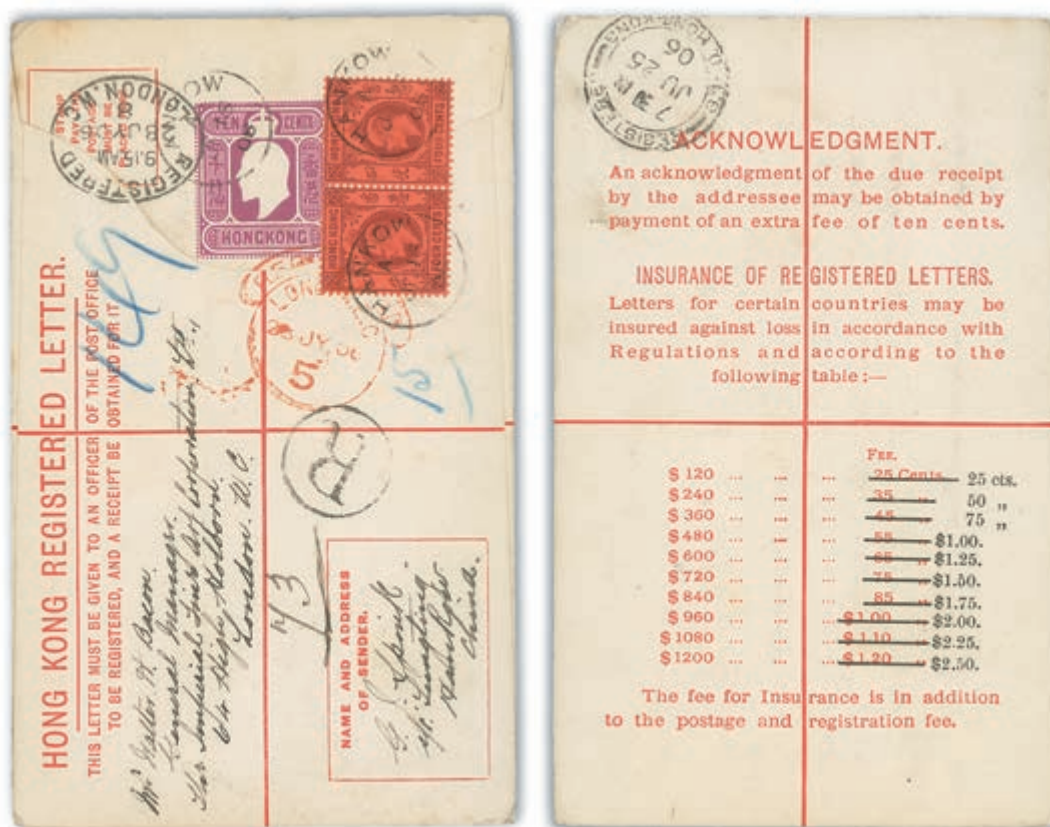 HONG KONG REGISTERED LETTER.
THIS LETTER MUST BE GIVEN TO AN OFFICER OF THE POST OFFICE
TO BE REGISTERED, AND A RECEIPT BE OBTAINED FOR IT
Mr Walter H. Bacon.
General Manager.
The Imperial Lines Corporation
64 High Holborn.
London. W.C.
REGISTERED
9.15AM
8 JY 06
LONDON. W.C.
TEN CENTS
HONGKONG
HONGKONG
HONGKONG
HANKOW
HANKOW
HANKOW
R
NAME AND ADDRESS
OF SENDER.
Hankow
China.
REGISTERED
7 PM
JU 25
06
ACKNOWLEDGMENT.
An acknowledgment of the due receipt
by the addressee may be obtained by
payment of an extra fee of ten cents.
INSURANCE OF REGISTERED LETTERS.
Letters for certain countries may be
insured against loss in accordance with
Regulations and according to the
following table:—
FEE.
$ 120 ... ... ... 25 Cents 25 cts.
$ 240 ... ... ... 35 „ 50 „
$ 360 ... ... ... 45 „ 75 „
$ 480 ... ... ... 55 „ $1.00.
$ 600 ... ... ... 65 „ $1.25.
$ 720 ... ... ... 75 „ $1.50.
$ 840 ... ... ... 85 „ $1.75.
$ 960 ... ... ... $1.00 „ $2.00.
$ 1080 ... ... ... $1.10 „ $2.25.
$ 1200 ... ... ... $1.20 „ $2.50.
The fee for Insurance is in addition
to the postage and registration fee.